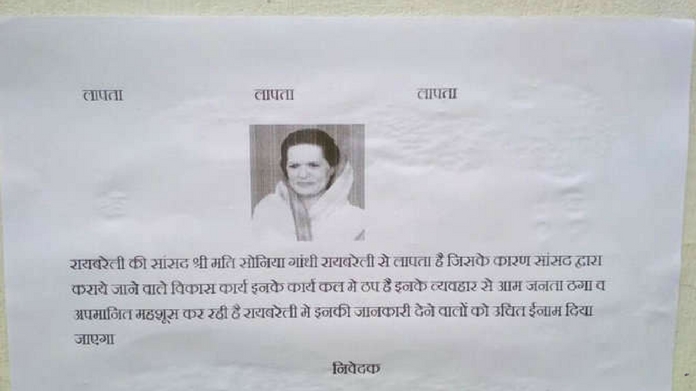 लापता लापता लापता
रायबरेली की सांसद श्री मति सोनिया गांधी रायबरेली से लापता है जिसके कारण सांसद द्वारा
कराये जाने वाले विकास कार्य इनके कार्य कल मे ठप है इनके व्यवहार से आम जनता ठगा व
अपमानित महशूस कर रही है रायबरेली मे इनकी जानकारी देने वालों को उचित ईनाम दिया
जाएगा
निवेदक